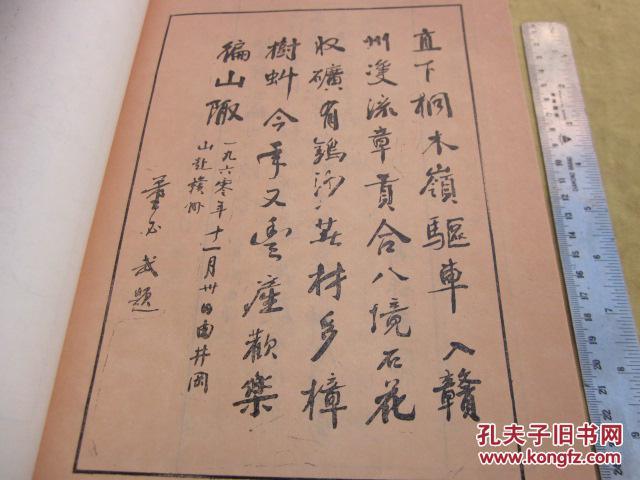 直下桐木嶺驅車入贛
州雙流章貢合八境石花
收礦有鎢沙甚材多樟
樹虯今年又豐產歡樂
徧山陬
一九六零年十一月卅日由井岡
山赴贛州
董必武題
孔夫子旧书网
www.kongfz.com